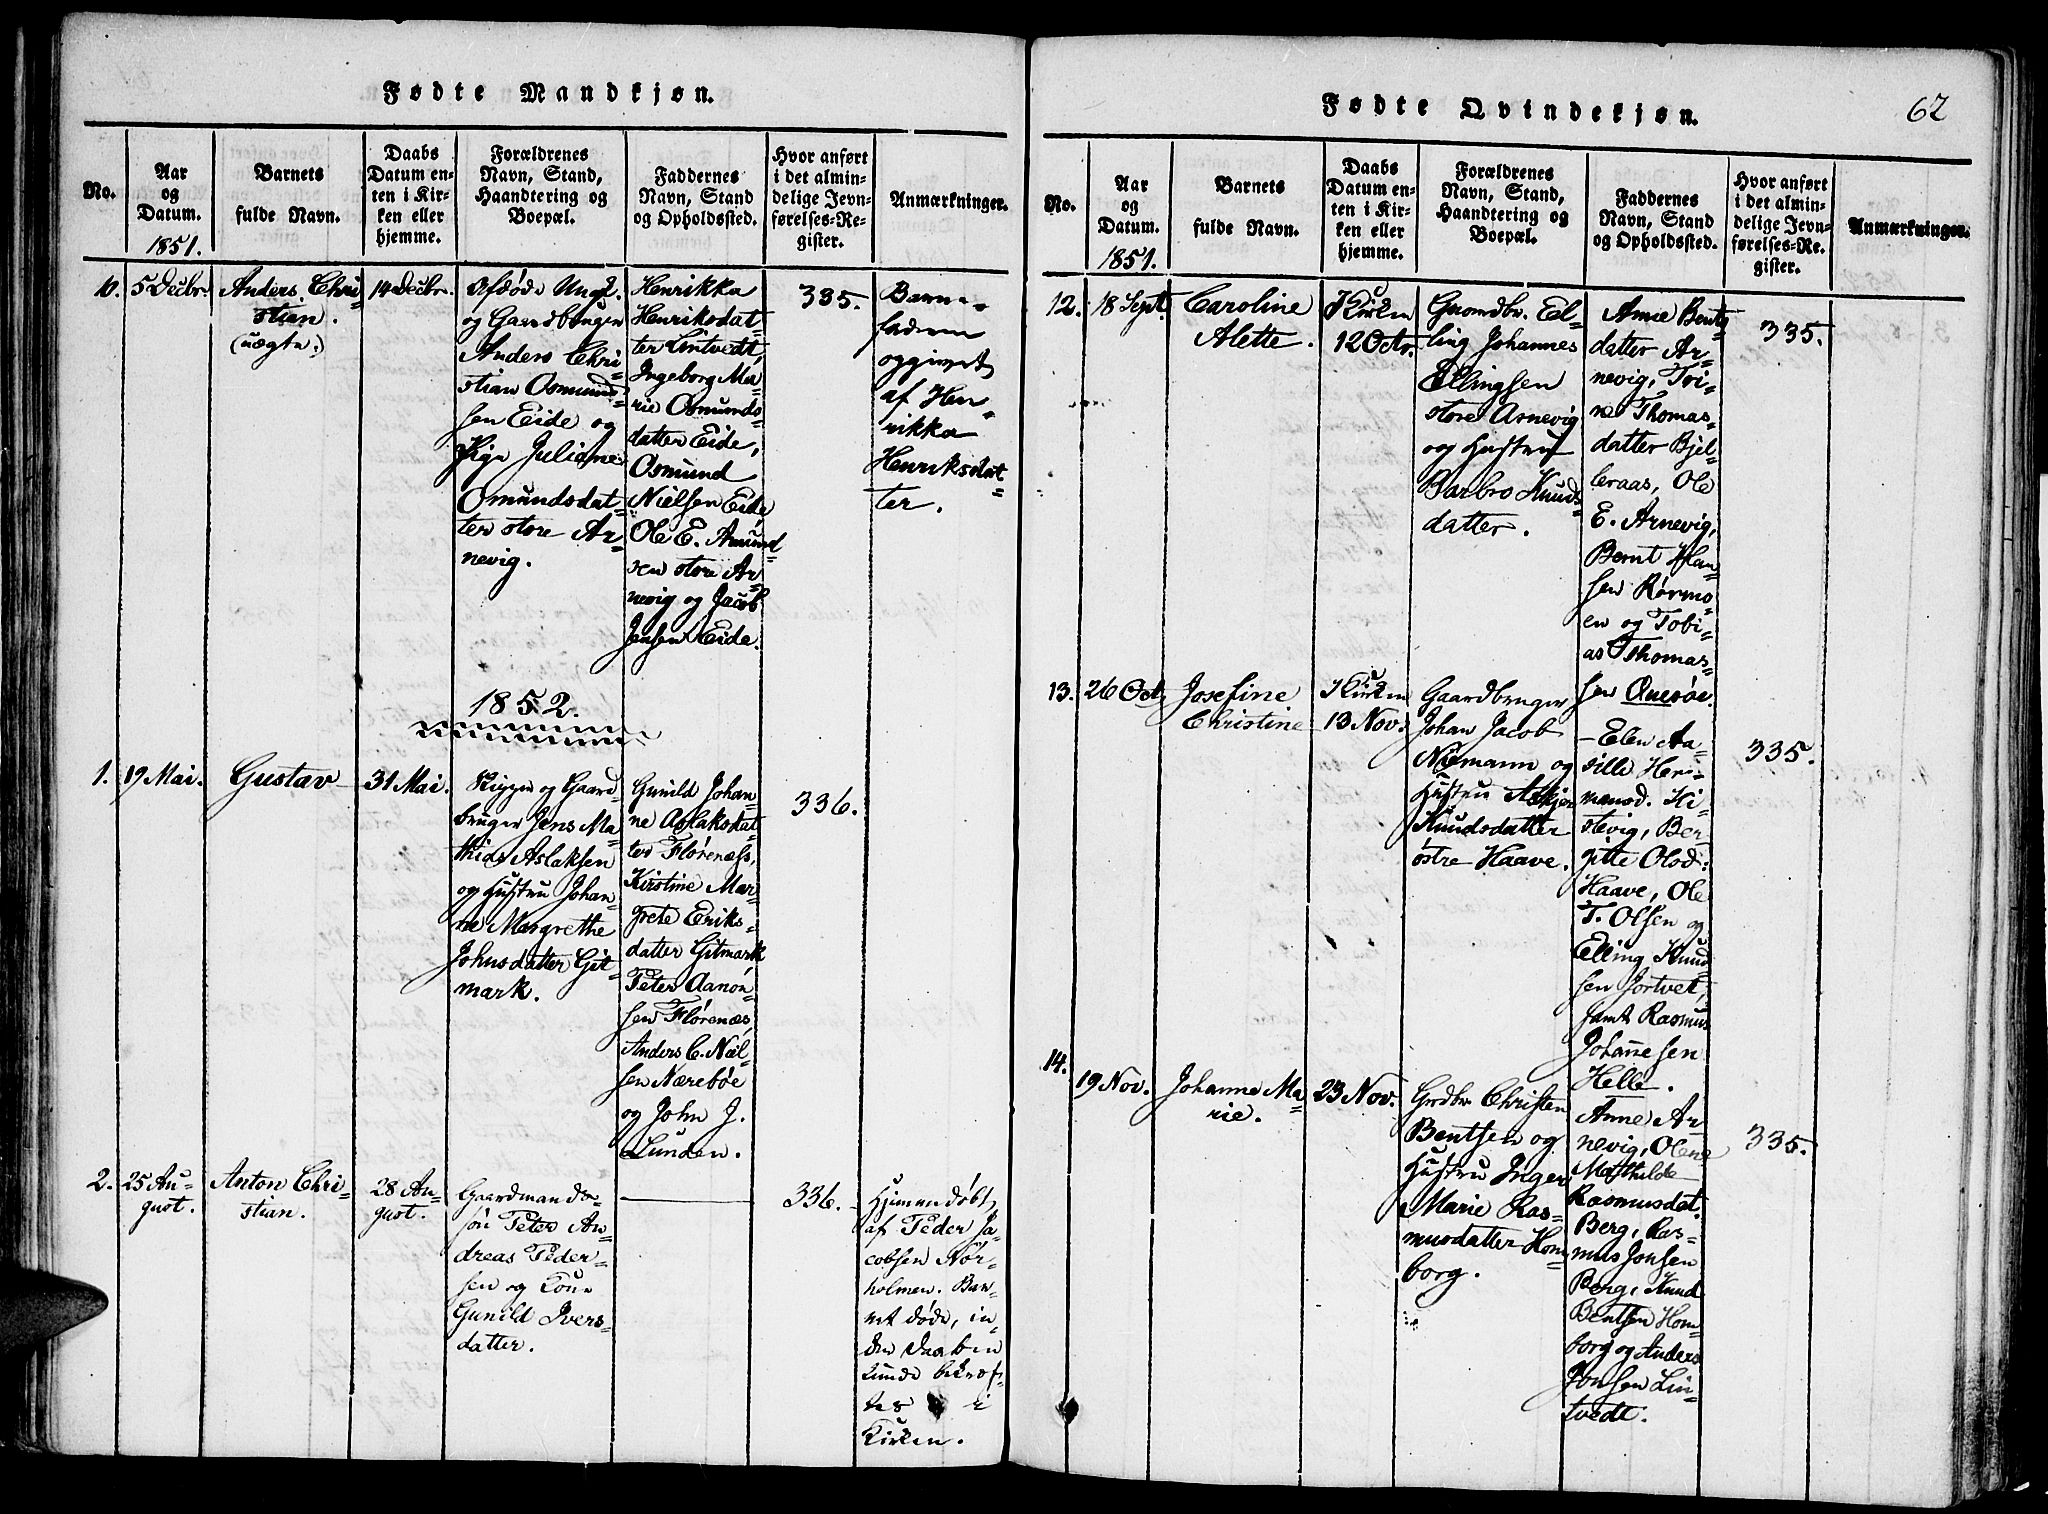 Fødte Mandkjøn.
No.
Aar
og
Datum.
1851.
Barnets
fulde Navn.
Daabs
Datum en-
ten i Kir-
ken eller
hjemme.
Forældrenes
Navn, Stand,
Haandtering og
Boepæl.
Faddernes
Navn, Stand
og Opholdssted.
Hvor anført
i det almin-
delige Jevn-
førelses-Re-
gister.
Anmærkninger.
10.
5 Decbr.
Anders Chri=
stian.
(uægte.)
14 Decbr.
Afdøde Ungk.
og Gaardbruger
Anders Chri=
stian Osmund=
sen Eide og
Pige Juliane
Omundsdat=
ter store Ar=
nevig.
Henrikka
Henriksdat=
ter Lintvedt,
Ingeborg Ma
rie Osmunds=
datter Eide,
Osmund
Nielsen Eide,
Ole E. Amund=
sen store Ar=
nevig og Jacob
Jensen Eide.
335.
Barne=
faderen
opgivet
af Hen=
rikka
Henriksdat=
ter.
1852.
1.
19 Mai.
Gustav
31 Mai.
og Gaard=
bruger Jens Ma=
thias Aslaksen
og Hustru Johan=
ne Margrethe
Johnsdatter Git=
mark.
Gunild Johan=
ne Aslaksdat=
ter Flørenæss,
Kirstine Mar=
grete Eriks=
datter Gitmark,
Peter Aanon=
sen Flørenæs,
Anders C. Niel=
sen Nærebøe
og John J.
Lunden.
336.
2.
25 Au=
gust.
Anton Chri=
stian.
28 Au=
gust.
Gaardmands=
søn Peter An=
dreas Peder=
sen og Kone
Gunild Ivers=
datter.
336.
Hjemmedøbt
af Peder Ja=
cobsen Nør=
holmen. Bar=
net døde, in=
den Daaben
kunde bekræf=
tes i
Kirken.
Fødte Qvindekjøn.
62
No.
Aar
og
Datum.
1851.
Barnets
fulde Navn.
Daabs
Datum en-
ten i Kir-
ken eller
hjemme.
Forældrenes
Navn, Stand,
Haandtering og
Boepæl.
Faddernes
Navn, Stand
og Opholdssted.
Hvor anført
i det almin-
delige Jevn-
førelses-Re-
gister.
Anmærkninger.
12.
18 Sept.
Caroline
Alette.
I Kirken
12 Octr.
Gaardbr. El=
ling Johannes
Ellingsen
store Arnevig
og Hustru
Barbro Knuds=
datter.
Anne Bents=
datter Ar=
nevig, Tri=
ne Thomas=
datter Bjel=
leraas, Ole
E. Arnevig,
Bernt Han=
sen Rørmo=
en og Tobi=
as Thomas=
sen Qverøe.
335.
13.
26 Oct.
Josefine
Christine
I Kirken
13 Nov.
Gaardbruger
Johan Jacob
Niemann og
Hustru Askjer
Knudsdatter
østre Haave.
Elen Aa=
sille Her=
manod. Hi=
stevig, Ber=
gitte Olsd.
Haave, Ole
T. Olsen og
Elling Knud=
sen Jortvet,
samt Rasmus
Johannesen
Helle.
335.
14.
19 Nov.
Johanne Ma=
rie.
23 Nov.
Grdbr. Christen
Bentsen og
Hustru Inger
Marie Ras=
musdatter Hom=
borg.
Anne Ar=
nevig, Olene
Mathilde
Rasmusdat.
Berg, Ras=
mus Jonsen
Berg, Knud
Bentsen Hom=
borg og Anders
Jonsen Lin=
tvedt.
335.